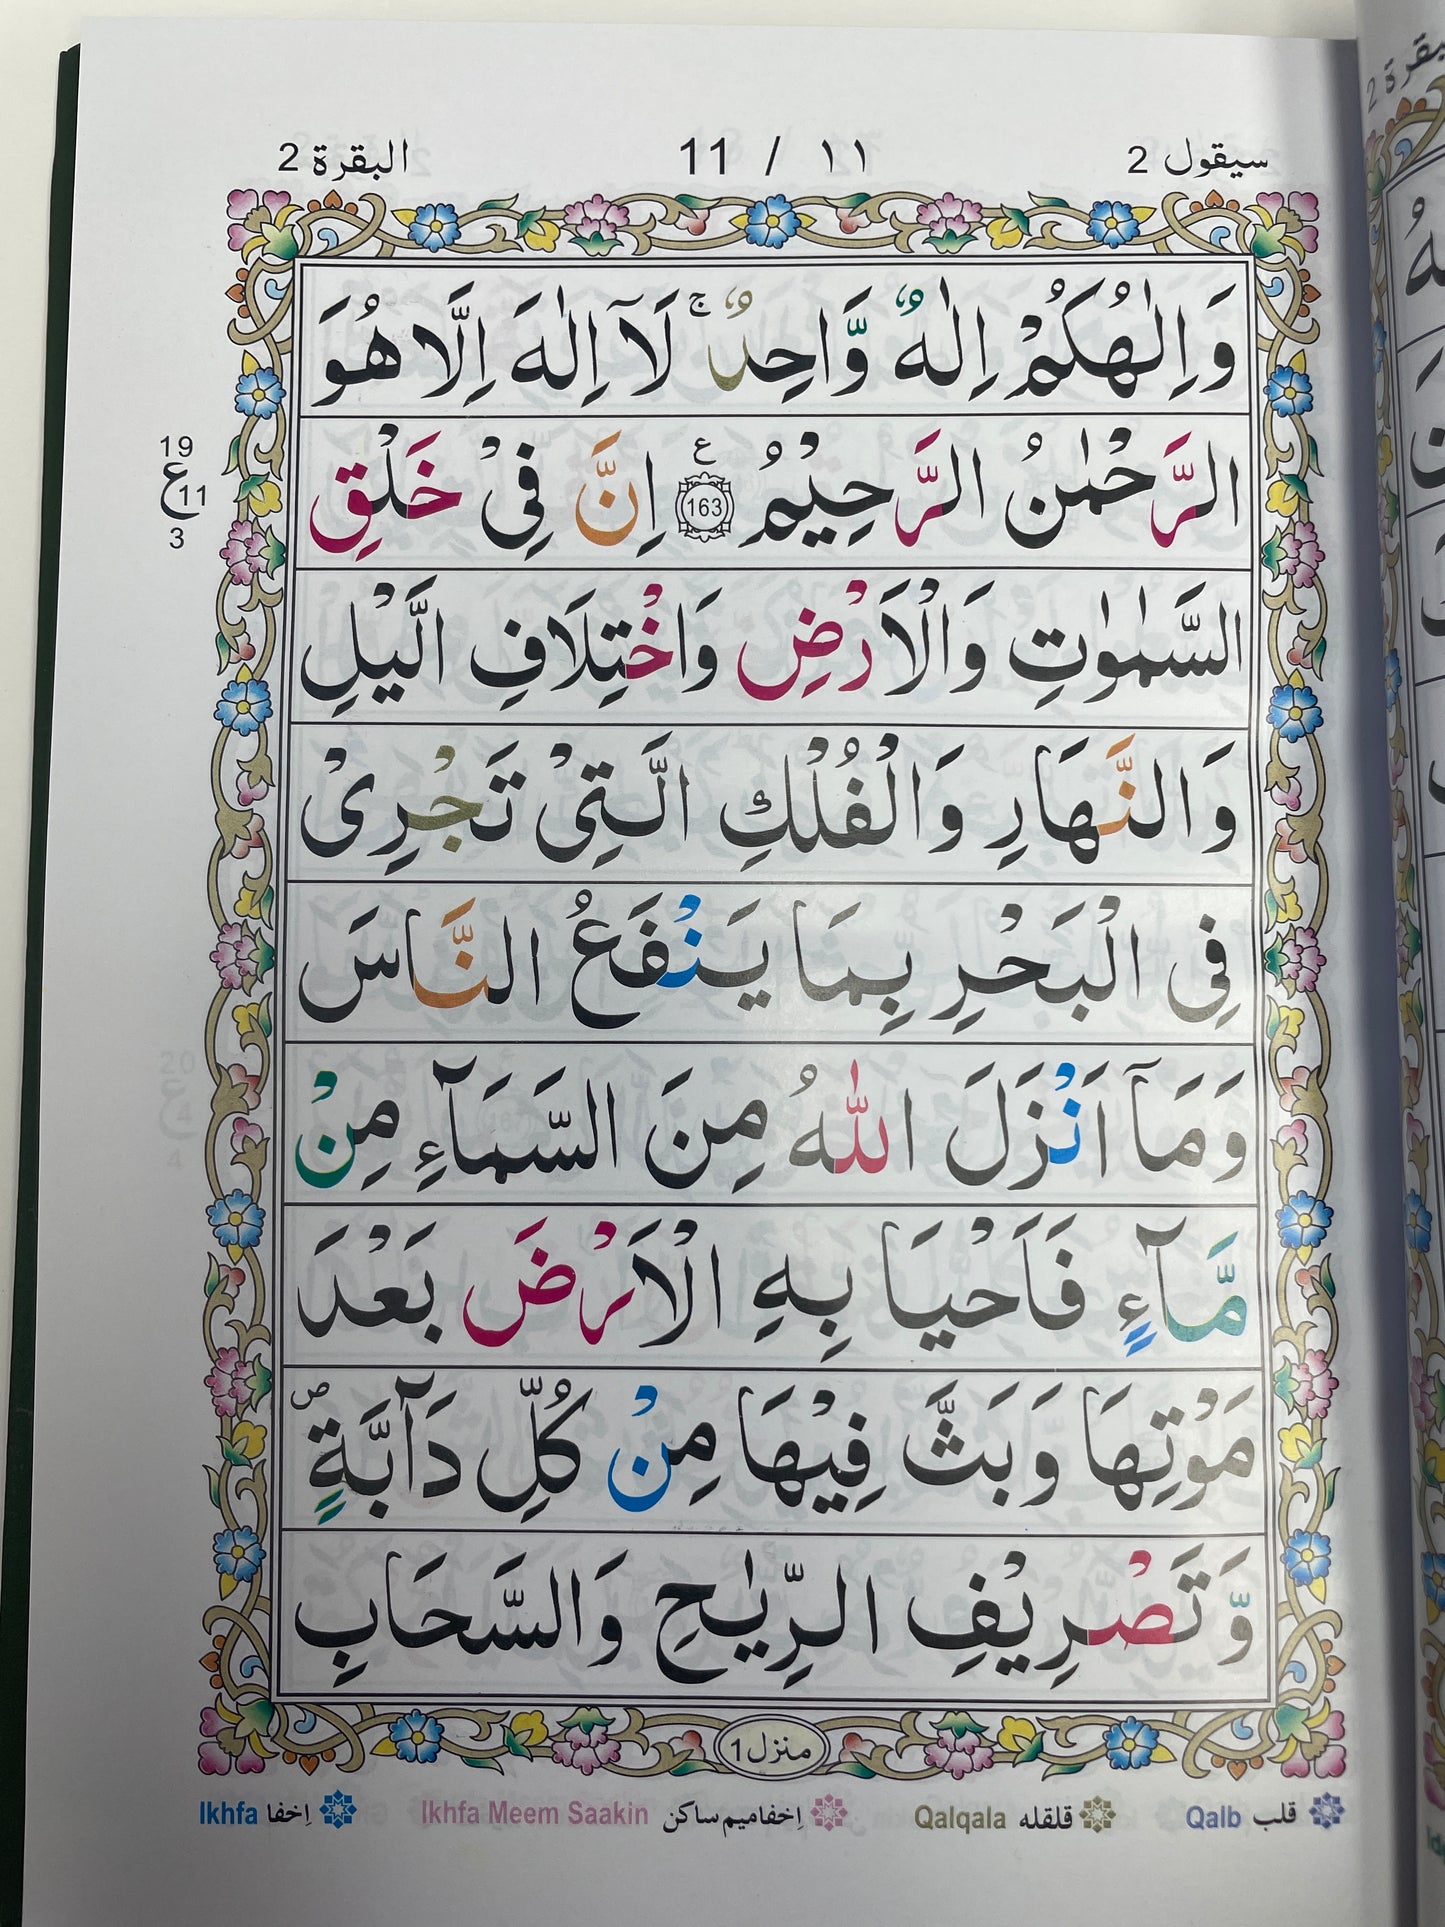 سيقول 2
11 / ١١
البقرة 2
وَاِلٰهُكُمْ اِلٰهٌ وَّاحِدٌ ۚ لَآ اِلٰهَ اِلَّا هُوَ
الرَّحْمٰنُ الرَّحِيْمُ ع 163 اِنَّ فِيْ خَلْقِ
السَّمٰوٰتِ وَالْاَرْضِ وَاخْتِلَافِ الَّيْلِ
وَالنَّهَارِ وَالْفُلْكِ الَّتِيْ تَجْرِيْ
فِي الْبَحْرِ بِمَا يَنْفَعُ النَّاسَ
وَمَآ اَنْزَلَ اللّٰهُ مِنَ السَّمَآءِ مِنْ
مَّآءٍ فَاَحْيَا بِهِ الْاَرْضَ بَعْدَ
مَوْتِهَا وَبَثَّ فِيْهَا مِنْ كُلِّ دَآبَّةٍ ص
وَّتَصْرِيْفِ الرِّيٰحِ وَالسَّحَابِ
19
ع 11
3
منزل 1
قلب Qalb
قلقله Qalqala
اِخفامیم ساکن Ikhfa Meem Saakin
اِخفا Ikhfa